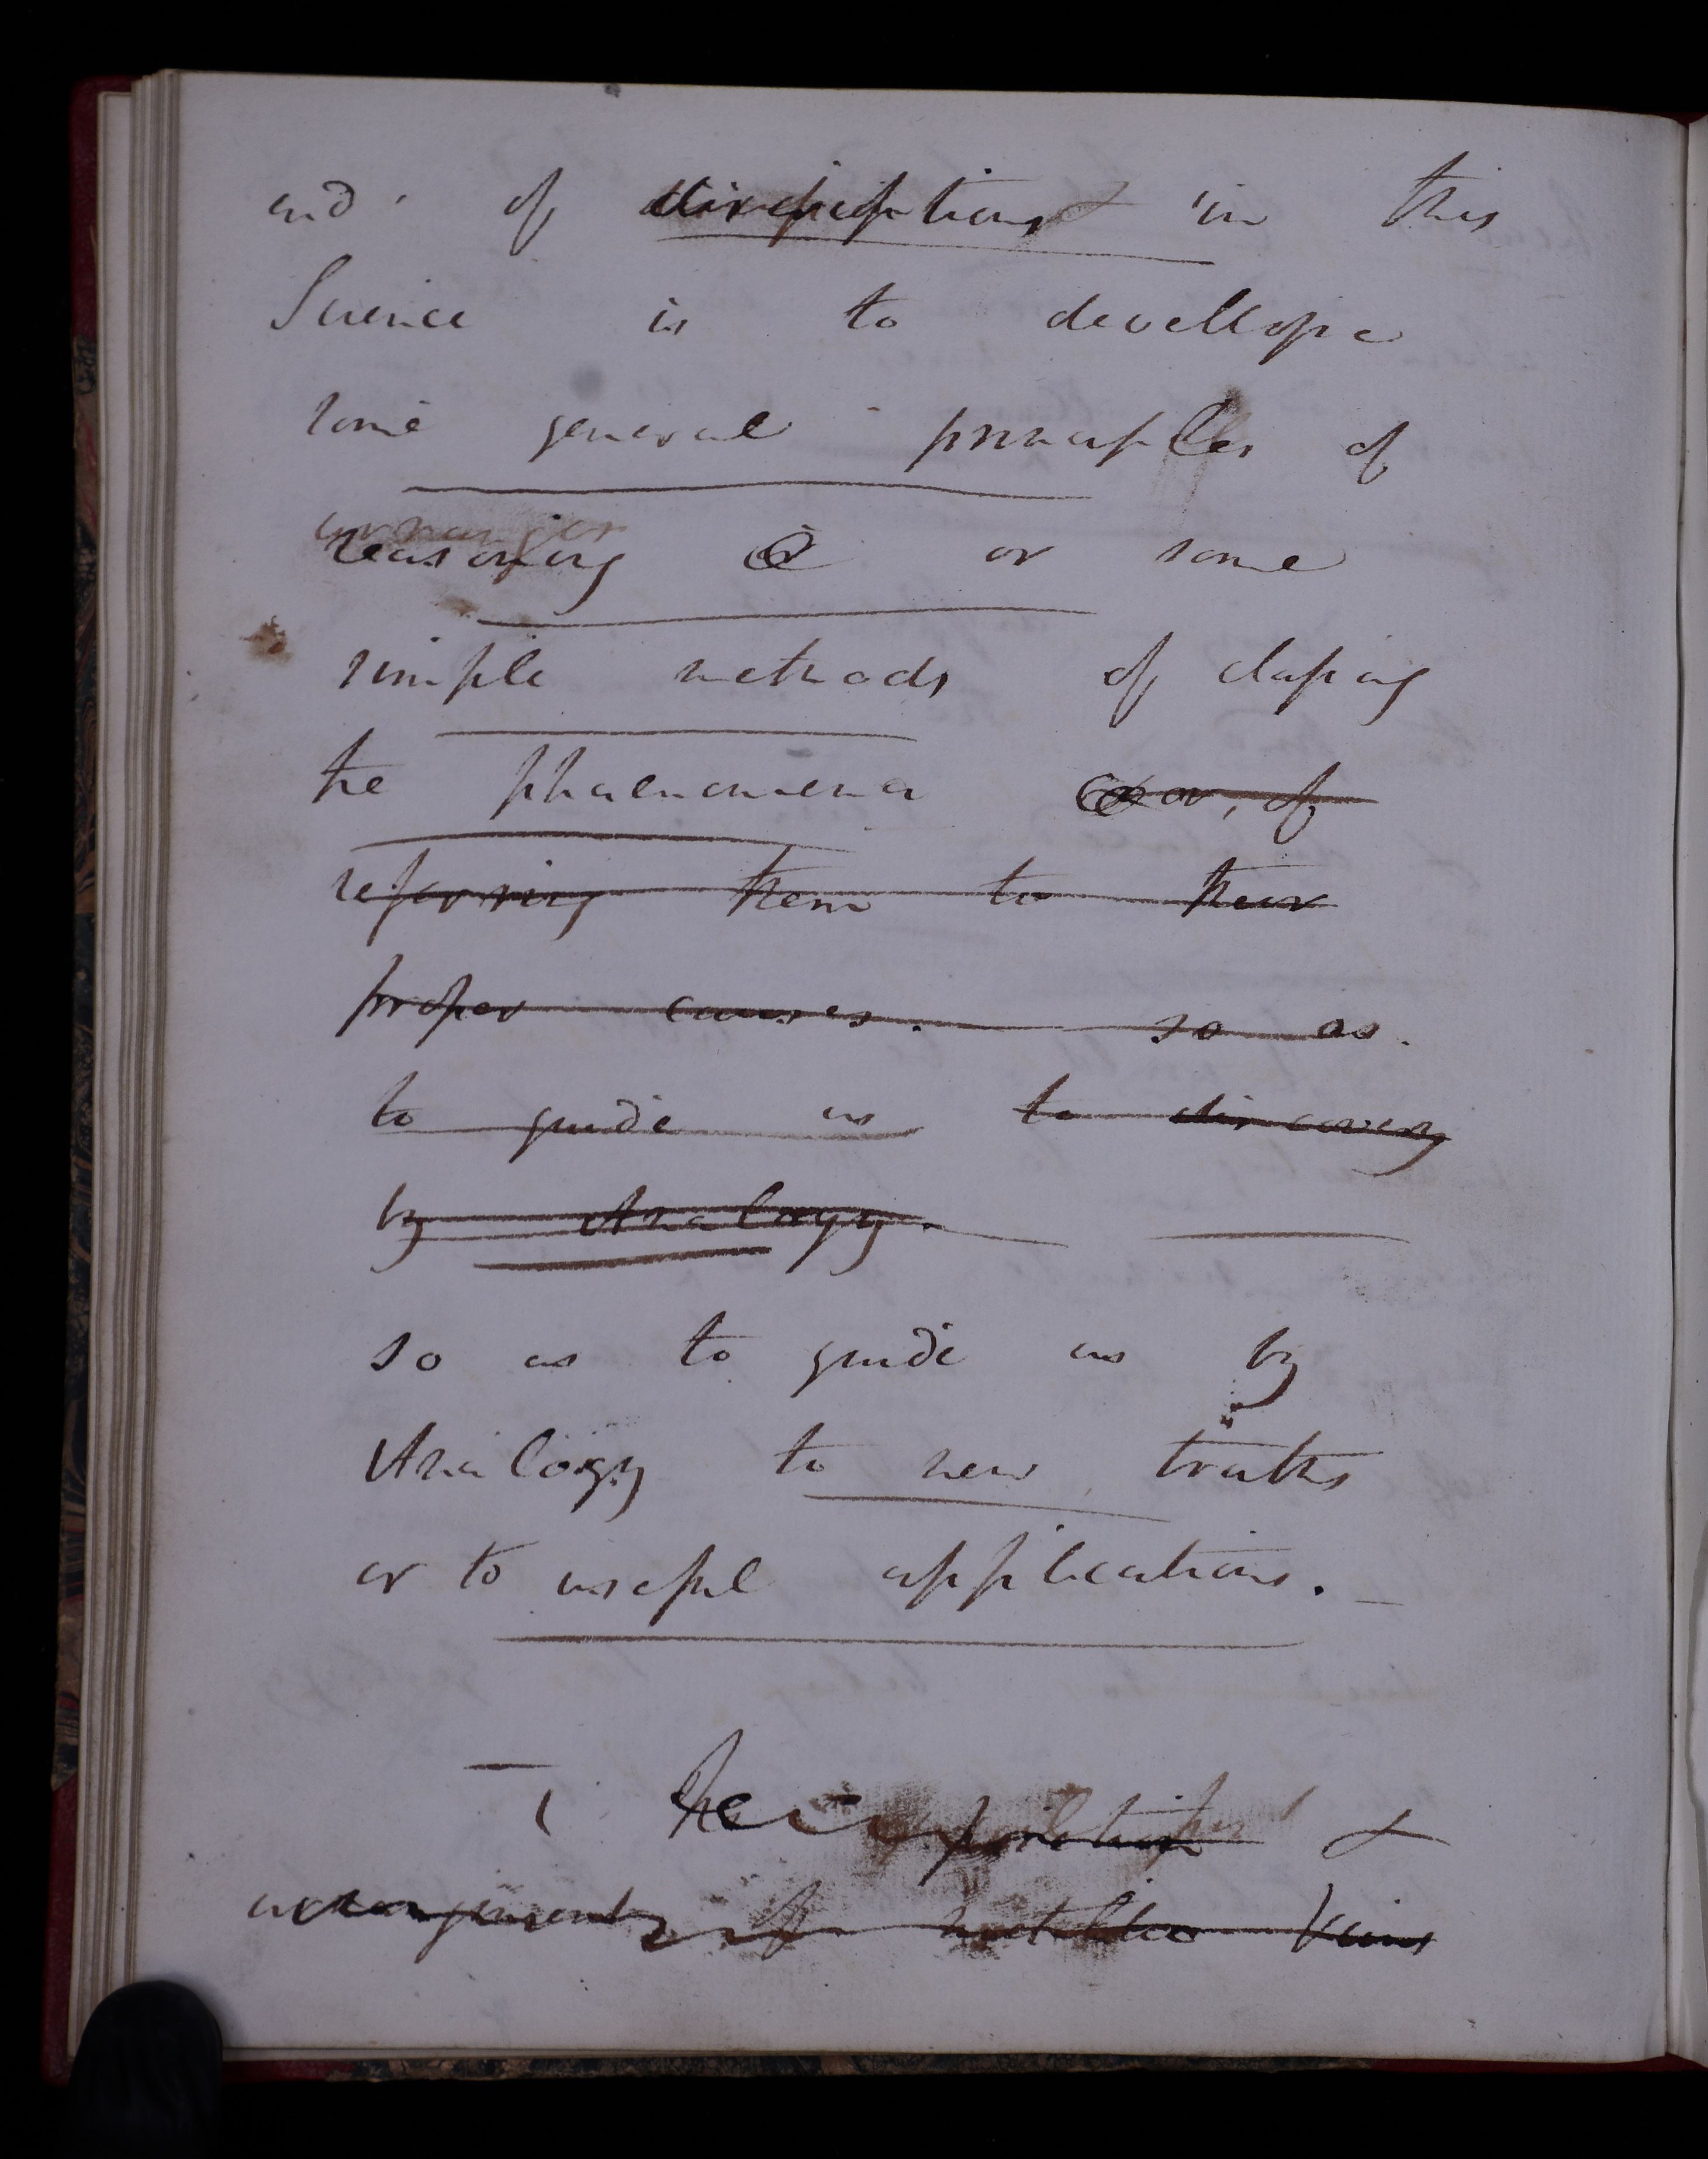 end of in this
Science is to devellope
some general principles of
reasoning or some
simple methods of classing
the phaenomena or, of
referring them to their
proper causes. so as.
to guide us to discovery
by Analogy.
so as to guide us by
Analogy to new truths
or to useful applications.
The &
arrangements of metallic Veins